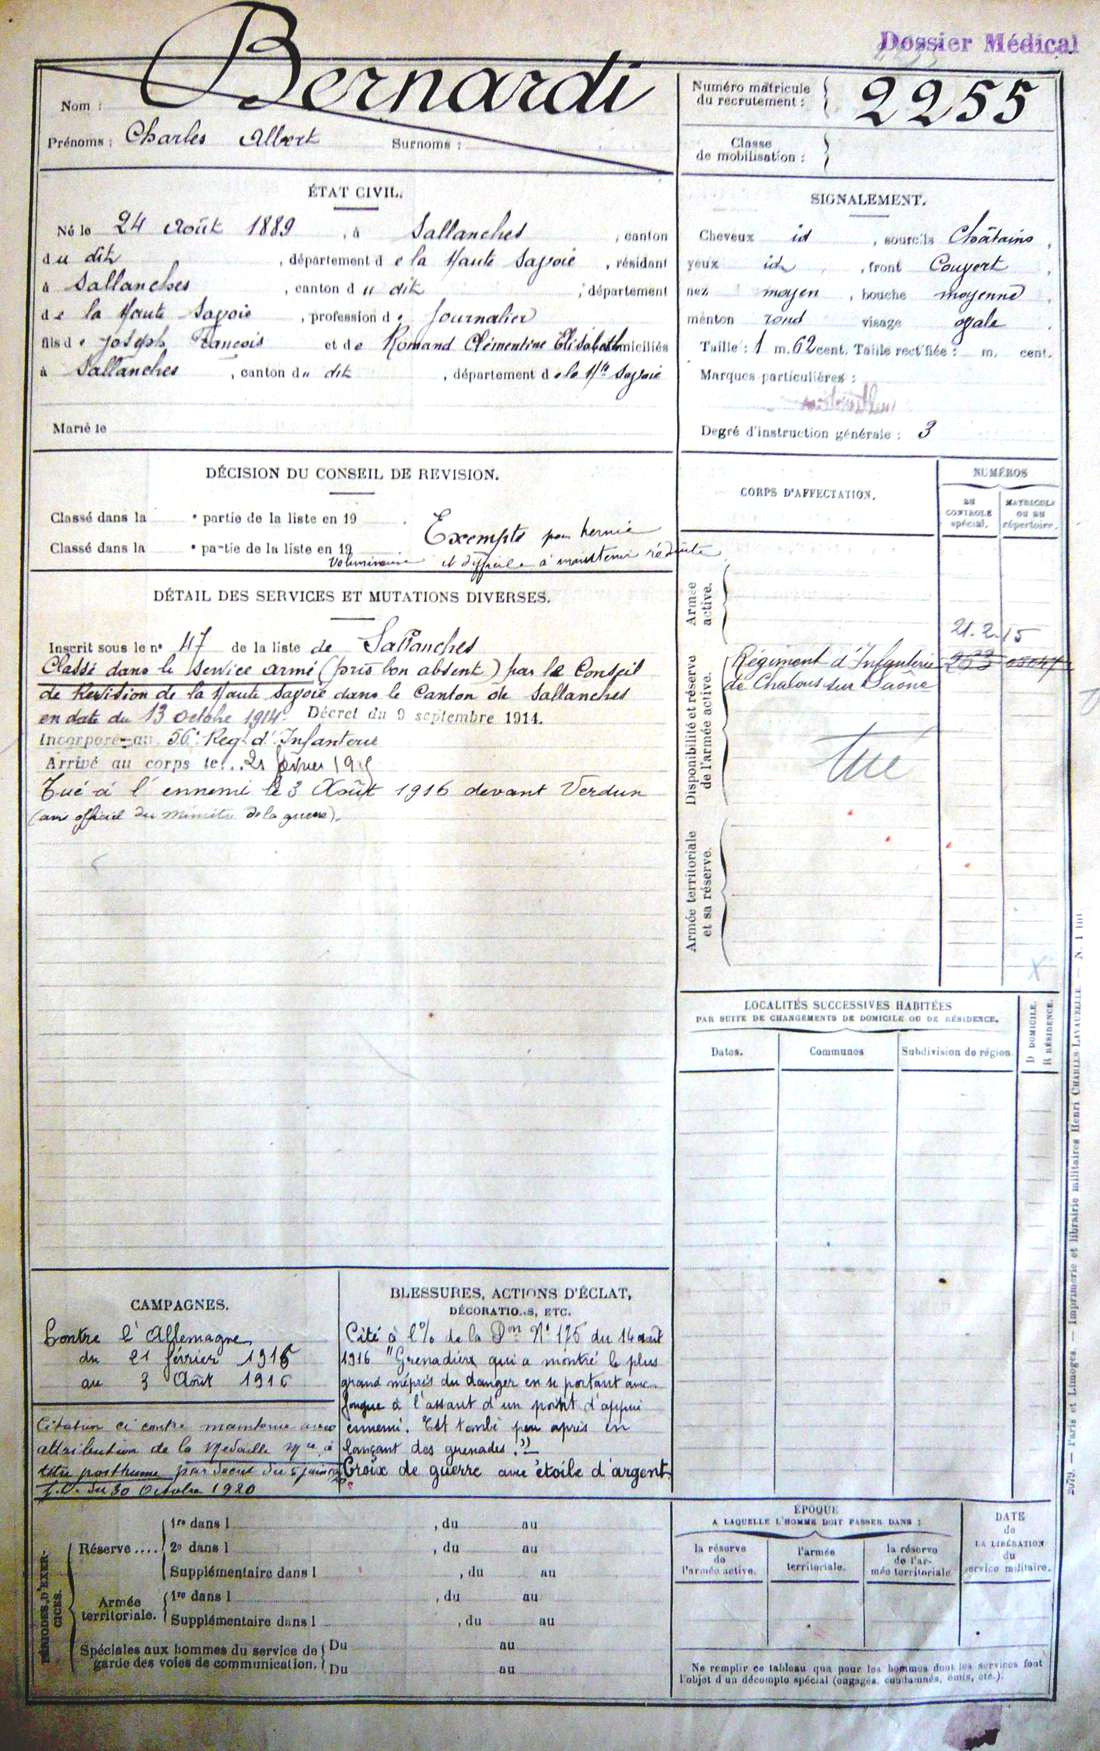 Dossier Médical
Nom : Bernardi
Prénoms : Charles Albert Surnoms :
Numéro matricule
du recrutement : 2255
Classe
de mobilisation :
ÉTAT CIVIL.
Né le 24 Août 1889, à Sallanches, canton
du dit, département de la Haute Savoie, résidant
à Sallanches, canton du dit, département
de la Haute Savoie, profession de Journalier
fils de Joseph François et de Romand Clémentine Elisabeth domiciliés
à Sallanches, canton du dit, département de la Hte Savoie
Marié le
SIGNALEMENT.
Cheveux id, sourcils Châtains,
yeux id, front Couvert,
nez moyen, bouche moyenne,
menton rond visage ovale
Taille : 1 m. 62 cent. Taille rectifiée : m. cent.
Marques particulières :
Degré d'instruction générale : 3
DÉCISION DU CONSEIL DE REVISION.
Classé dans la e partie de la liste en 19
Classé dans la e partie de la liste en 19
Exempté pour hernie
volumineuse et difficile à maintenir réduite
DÉTAIL DES SERVICES ET MUTATIONS DIVERSES.
Inscrit sous le n° 47 de la liste de Sallanches
Classé dans le service armé (pris bon absent) par le Conseil
de Revision de la Haute Savoie dans le Canton de Sallanches
en date du 13 octobre 1914. Décret du 9 septembre 1914.
Incorporé au 56e Regt d'Infanterie
Arrivé au corps le 21 février 1915
Tué à l'ennemi le 3 Août 1916 devant Verdun
(avis officiel du Ministre de la guerre).
CORPS D'AFFECTATION.
NUMÉROS
DU
CONTROLE
spécial.
MATRICULE
OU DU
répertoire.
Armée
active.
21.2.15
Disponibilité et réserve
de l'armée active.
Régiment d'Infanterie
de Chalons sur Saône
tué
Armée territoriale
et sa réserve.
LOCALITÉS SUCCESSIVES HABITÉES
PAR SUITE DE CHANGEMENTS DE DOMICILE OU DE RÉSIDENCE.
D DOMICILE.
R RÉSIDENCE.
Dates.
Communes
Subdivision de région
CAMPAGNES.
Contre l'Allemagne
du 21 février 1915
au 3 Août 1916
Citation ci contre maintenue avec
attribution de la Médaille Mre à
titre posthume par décret du
J.O. du 30 Octobre 1920
BLESSURES, ACTIONS D'ÉCLAT,
DÉCORATIONS, ETC.
Cité à l'O/ de la Don N° 175 du 14 août
1916 "Grenadier qui a montré le plus
grand mépris du danger en se portant avec
fougue à l'assaut d'un point d'appui
ennemi. Est tombé peu après en
lançant des grenades."
Croix de guerre avec étoile d'argent
PÉRIODES D'EXERCICES.
Réserve....
1re dans l , du au
2e dans l , du au
Supplémentaire dans l , du au
Armée
territoriale.
1re dans l , du au
Supplémentaire dans l , du au
Spéciales aux hommes du service de
garde des voies de communication.
Du au
Du au
ÉPOQUE
A LAQUELLE L'HOMME DOIT PASSER DANS :
la réserve
de
l'armée active.
l'armée
territoriale.
la réserve
de l'ar-
mée territoriale
DATE
de
LA LIBÉRATION
du
service militaire.
Ne remplir ce tableau que pour les hommes dont les services font
l'objet d'un décompte spécial (engagés, condamnés, omis, etc.).
2079. — Paris et Limoges. — Imprimerie et librairie militaires Henri CHARLES-LAVAUZELLE. — N. 1 bis